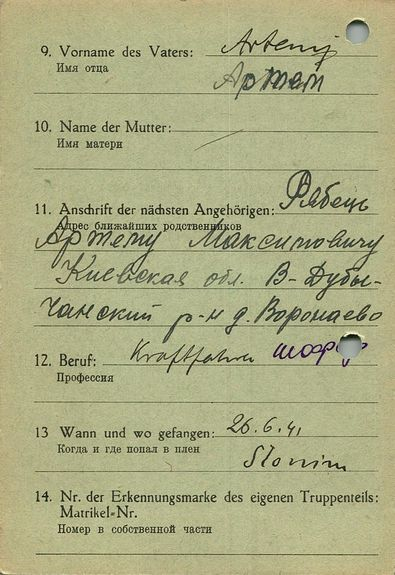 9. Vorname des Vaters: Artemj
Имя отца Артем
10. Name der Mutter:
Имя матери
11. Anschrift der nächsten Angehörigen: Рябець
Адрес ближайших родственников
Артему Максимовичу
Киевская обл. В-Дубы-
чанский р-н д. Воронаево
12. Beruf: Kraftfahrer шофер
Профессия
13 Wann und wo gefangen: 26.6.41
Когда и где попал в плен Slonim
14. Nr. der Erkennungsmarke des eigenen Truppenteils:
Matrikel-Nr.
Номер в собственной части